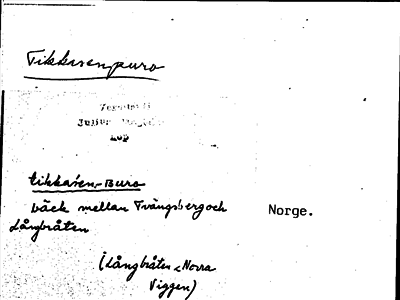 Tikkasenpuro
Julius
kop
tikkasen-Buro
bäck mellan Tvängsberg och
Långbråten
Norge.
(Långbråten, Norra
Viggen)